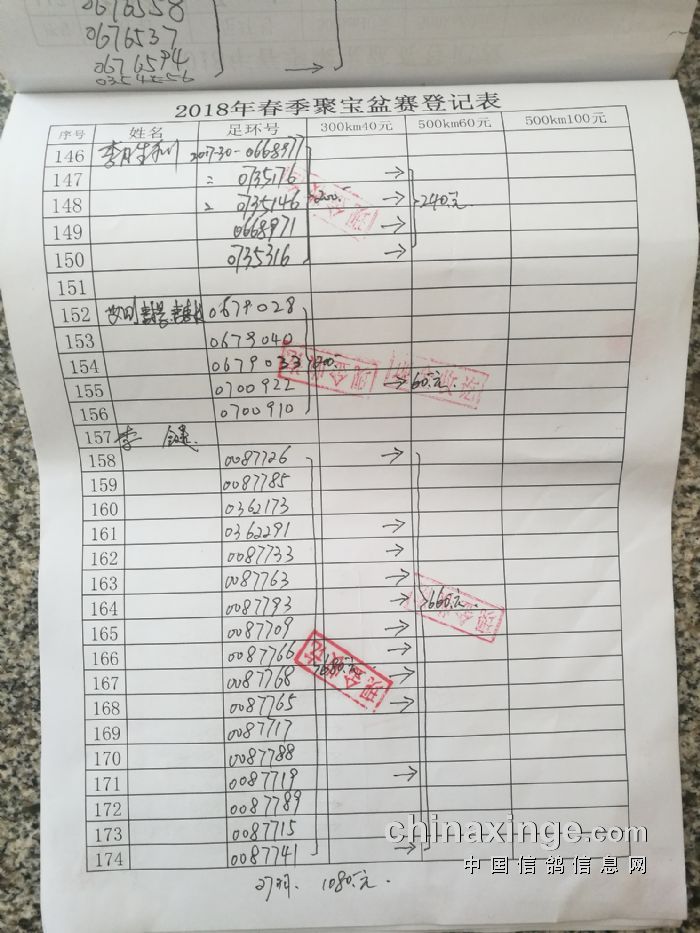 0676558
0676537
0676594
0354556
2018年春季聚宝盆赛登记表
序号 姓名 足环号 300km40元 500km60元 500km100元
146 2017-30-0668977
147 0735176 →
148 0735146 200. → 240.元
149 0668971 →
150 0735316 →
151
152 0679028
153 0679040
154 0679033 200.
155 0700922 → 60.元
156 0700910
157 李
158 0087726 →
159 0087785
160 0362173
161 0362291 →
162 0087733 →
163 0087763 →
164 0087793 → 660.元
165 0087709 →
166 0087766 →
167 0087768 680.元 →
168 0087765 →
169 0087717
170 0087788
171 0087719 →
172 0087789
173 0087715
174 0087741 →
27羽. 1080.元.
现金收讫
chinaxinge.com
中国信鸽信息网